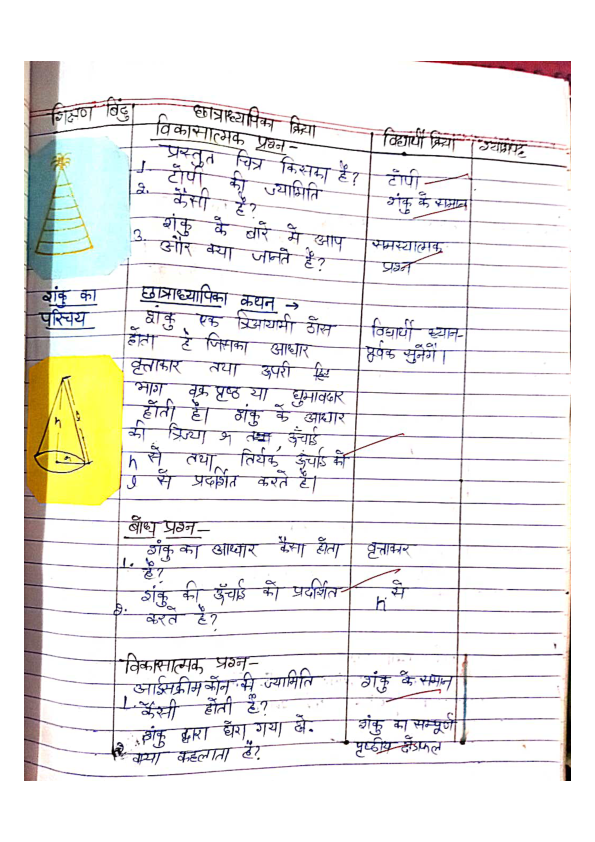 शिक्षण बिंदु
छात्राध्यापिका क्रिया
विद्यार्थी क्रिया
विकासात्मक प्रश्न-
1. प्रस्तुत चित्र किसका है?
टोपी
2. टोपी की ज्यामिति
कैसी है?
शंकु के समान
3. शंकु के बारे में आप
और क्या जानते है?
समस्यात्मक
प्रश्न
शंकु का
परिचय
छात्राध्यापिका कथन →
शंकु एक त्रिआयामी ठोस
होता है जिसका आधार
वृत्ताकार तथा ऊपरी
भाग वक्र पृष्ठ या घुमावदार
होती है। शंकु के आधार
की त्रिज्या r ऊँचाई
h से तथा तिर्यक ऊँचाई को
l से प्रदर्शित करते है।
विद्यार्थी ध्यान-
पूर्वक सुनेगें।
h
r
बोध प्रश्न-
1. शंकु का आधार कैसा होता
है?
वृत्ताकार
2. शंकु की ऊँचाई को प्रदर्शित
करते है?
h से
विकासात्मक प्रश्न-
1. आईसक्रीम कॉन की ज्यामिति
कैसी होती है?
शंकु के समान
2. शंकु द्वारा घेरा गया क्षे.
क्या कहलाता है?
शंकु का सम्पूर्ण
पृष्ठीय क्षेत्रफल